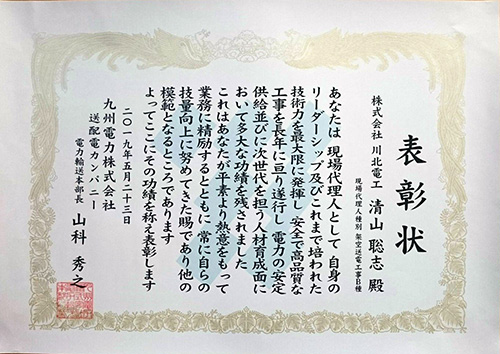 表彰状
株式会社 川北電工 清山 聡志 殿
現場代理人種別 架空送電工事B種
あなたは 現場代理人として 自身の
リーダーシップ及びこれまで培われた
技術力を最大限に発揮し 安全で高品質な
工事を長年に亘り遂行し 電力の安定
供給並びに次世代を担う人材育成面に
おいて多大な功績を残されました
これはあなたが平素より熱意をもって
業務に精励するとともに 常に自らの
技量向上に努めてきた賜であり他の
模範となるところであります
よってここにその功績を称え表彰します
二〇一九年五月二十三日
九州電力株式会社
送配電カンパニー
電力輸送本部長 山科 秀之